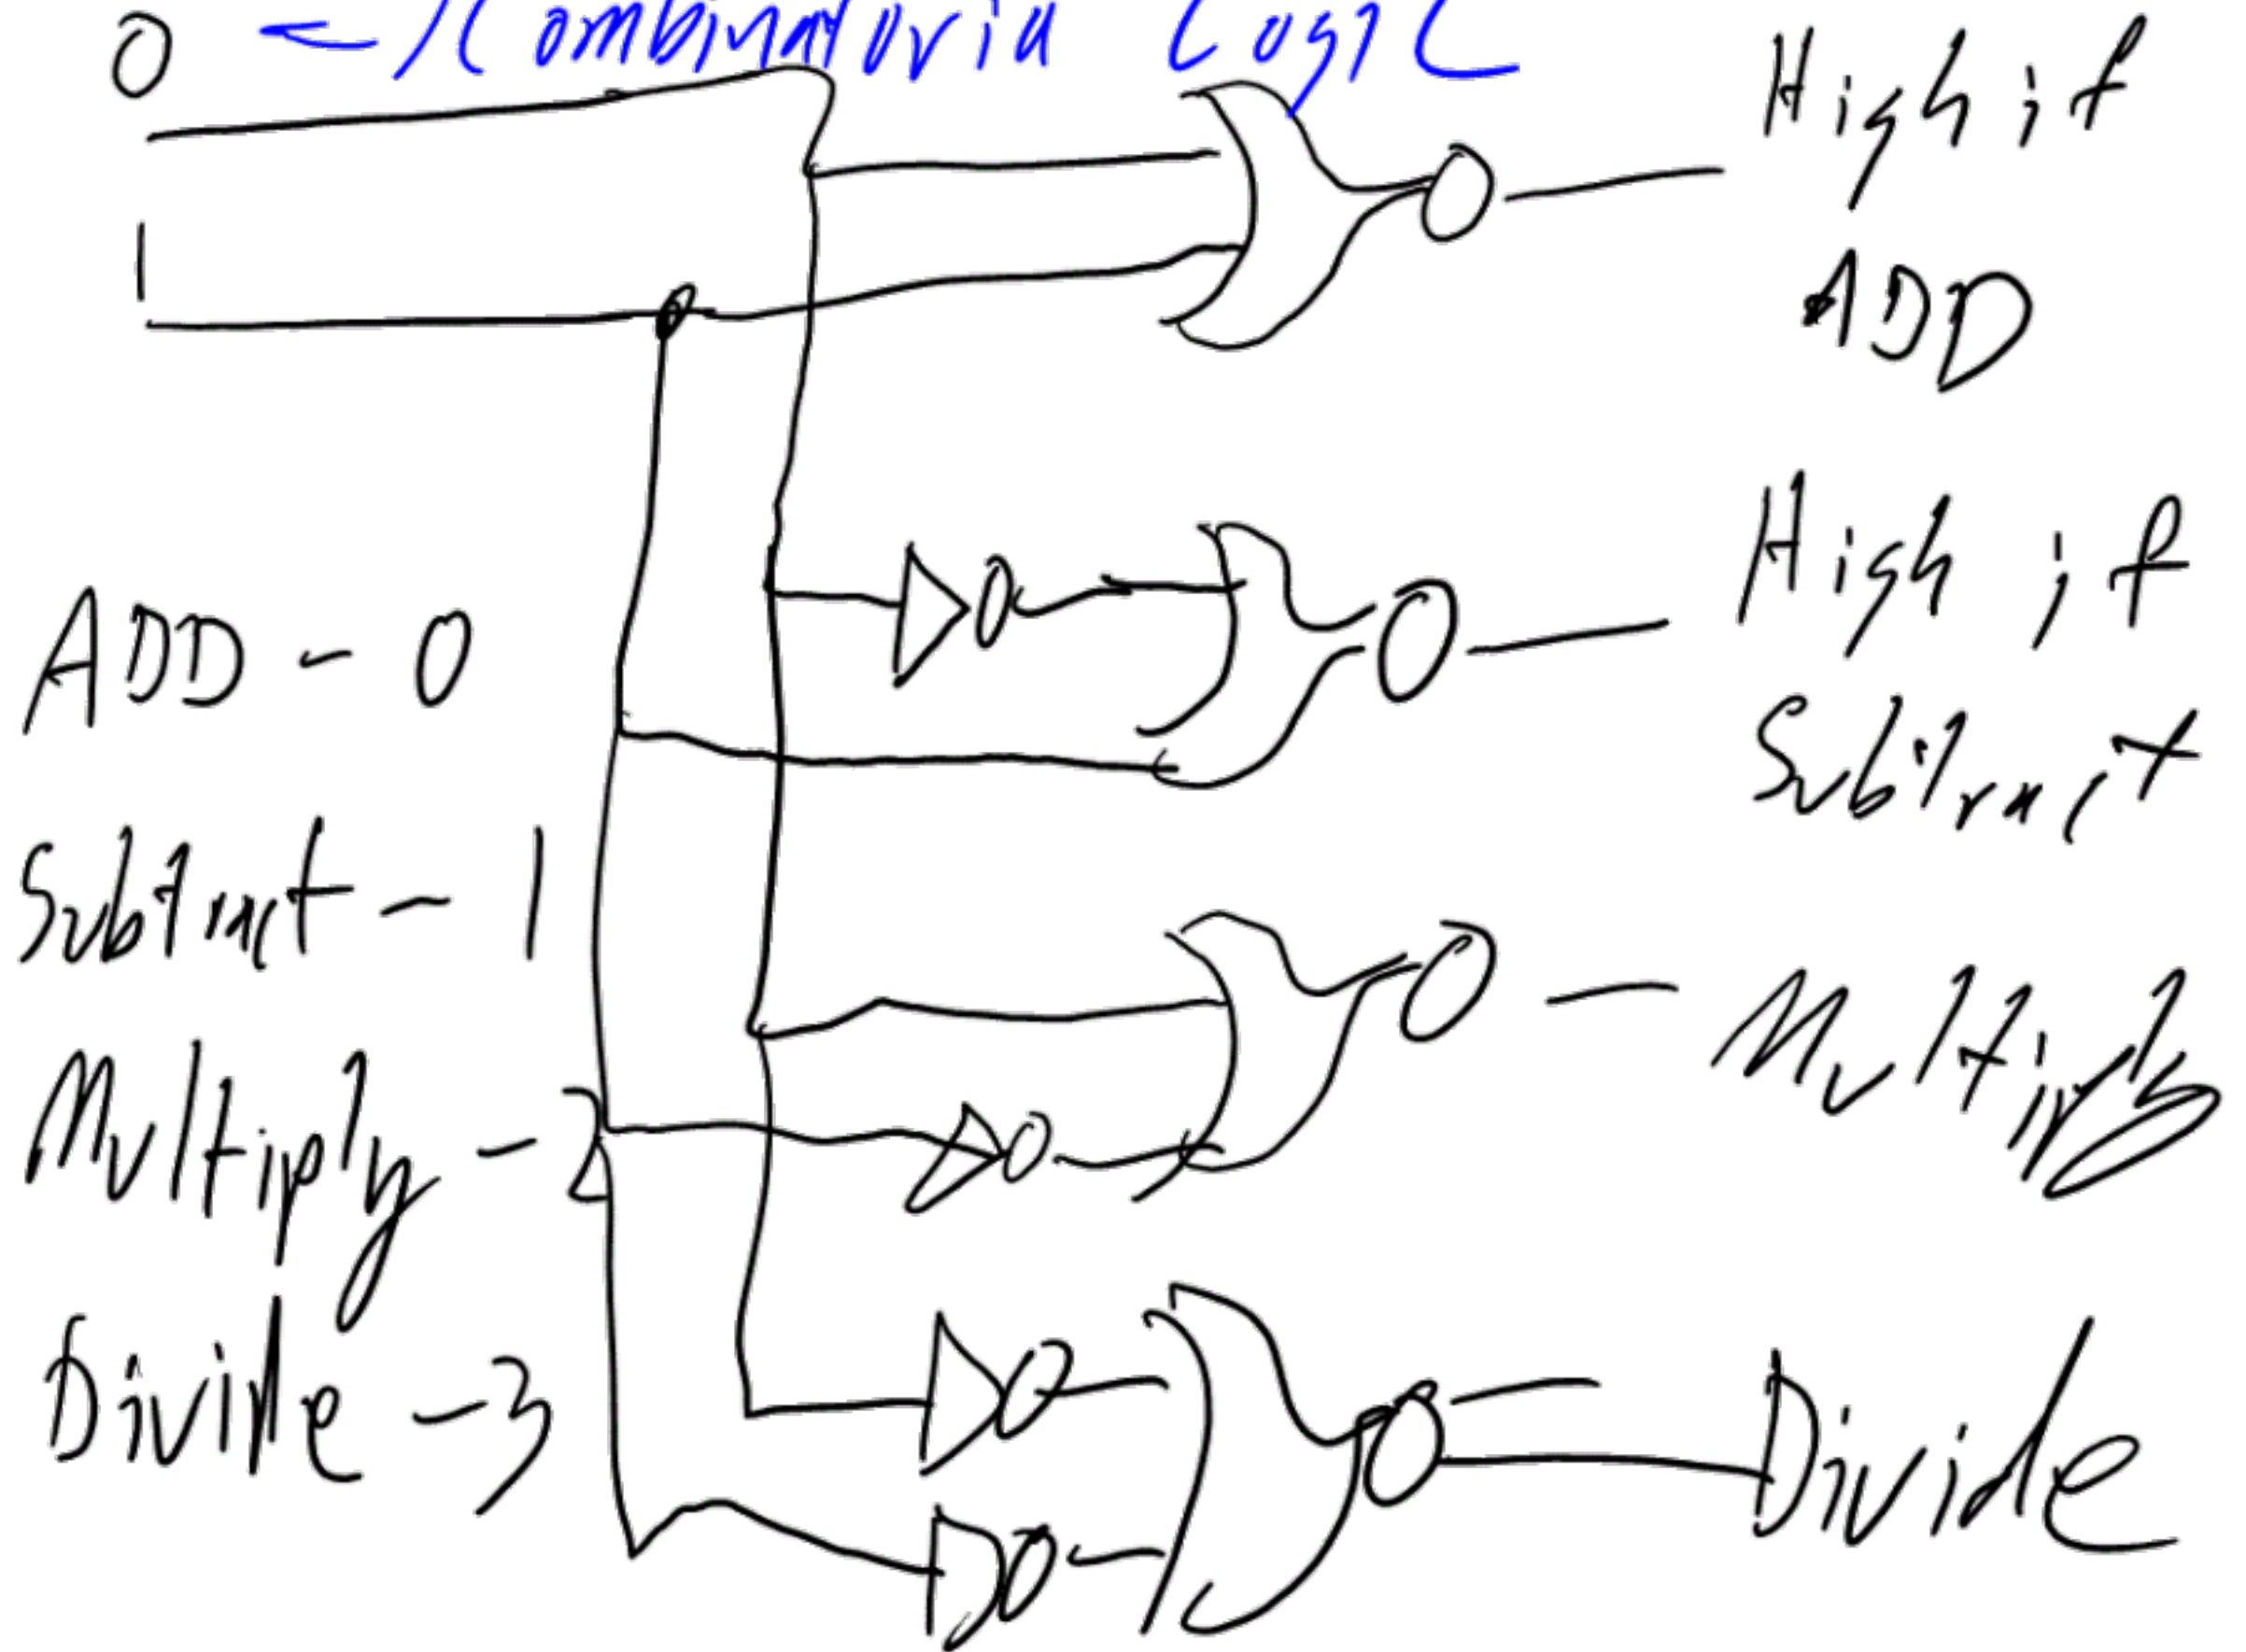 0 ← Combinatoria Logic
1
High if
ADD
ADD - 0
Subtract - 1
Multiply - 2
Divide - 3
High if
Subtract
Multiply
Divide